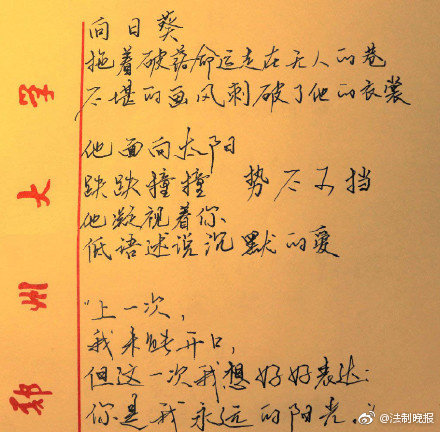 向日葵
拖着破落命运走在无人的巷
不堪的画风刺破了他的衣裳
他面向太阳
跌跌撞撞 势不可挡
他凝视着你
低语述说沉默的爱
“上一次,
我未能开口,
但这一次我想好好表达:
你是我永远的阳光.”
郑州大学
@法制晚报